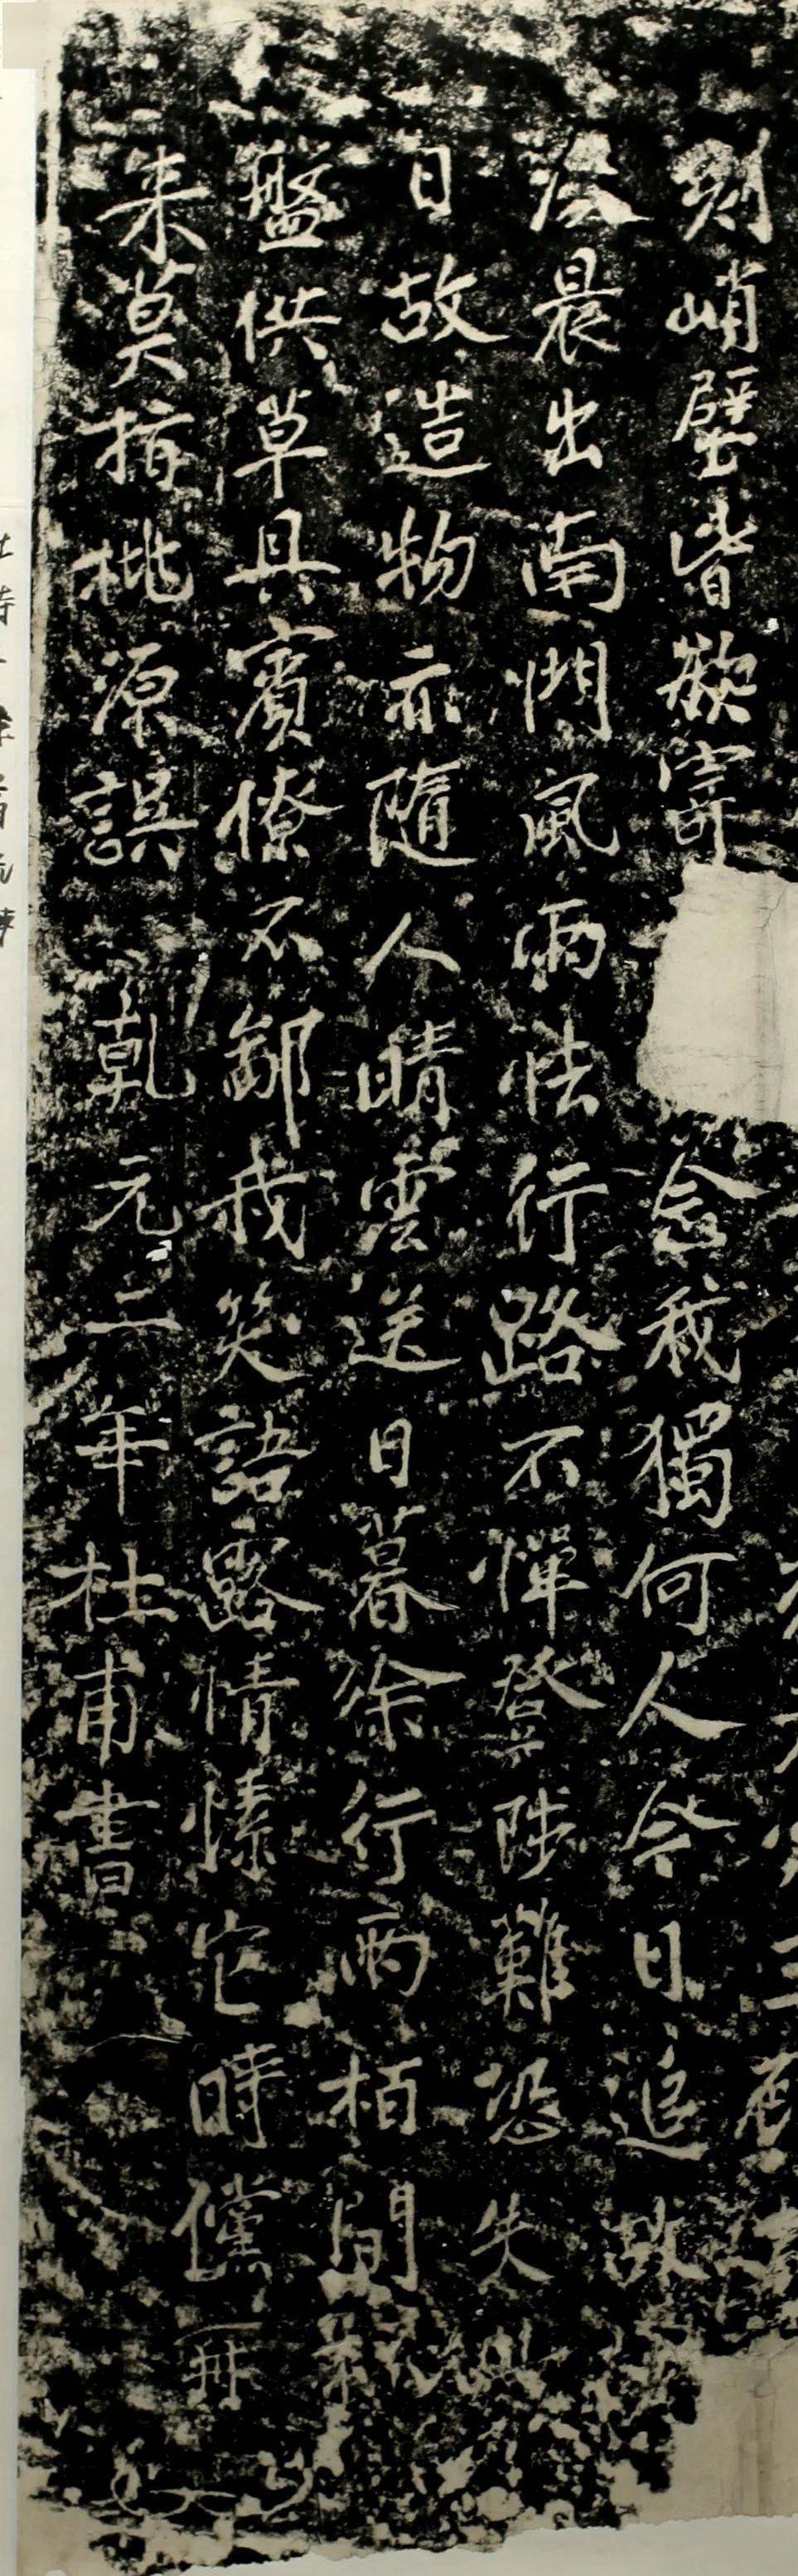 刻峭壁皆欲寄念我獨何人今日追故
凌晨出南門風雨怯行路不憚登陟難恐失
日故造物亦隨人晴雲送日暮徐行兩柏間
盤供草具賓僚不鄙我笑語露情愫它時儻再
来莫指桃源誤 乾元二年杜甫書